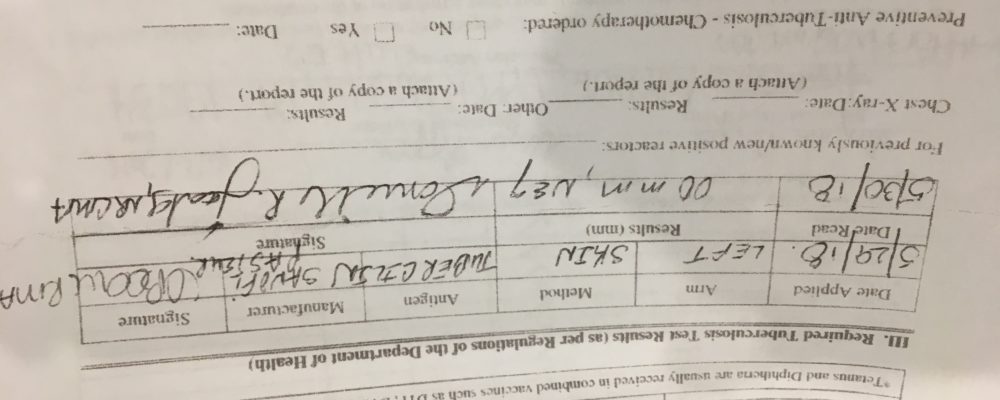 *Tetanus and Diphtheria are usually received in combined vaccines such as DTP,
III. Required Tuberculosis Test Results (as per Regulations of the Department of Health)
Date Applied Arm Method Antigen Manufacturer Signature
5/29/18. LEFT SKIN TUBERCULIN SANOFI PASTEUR RMA
Date Read Results (mm) Signature
5/30/18 00 mm, NEG Donielle R.
For previously known/new positive reactors:
Chest X-ray: Date: Results: Other: Date: Results:
(Attach a copy of the report.) (Attach a copy of the report.)
Preventive Anti-Tuberculosis - Chemotherapy ordered: No Yes Date: